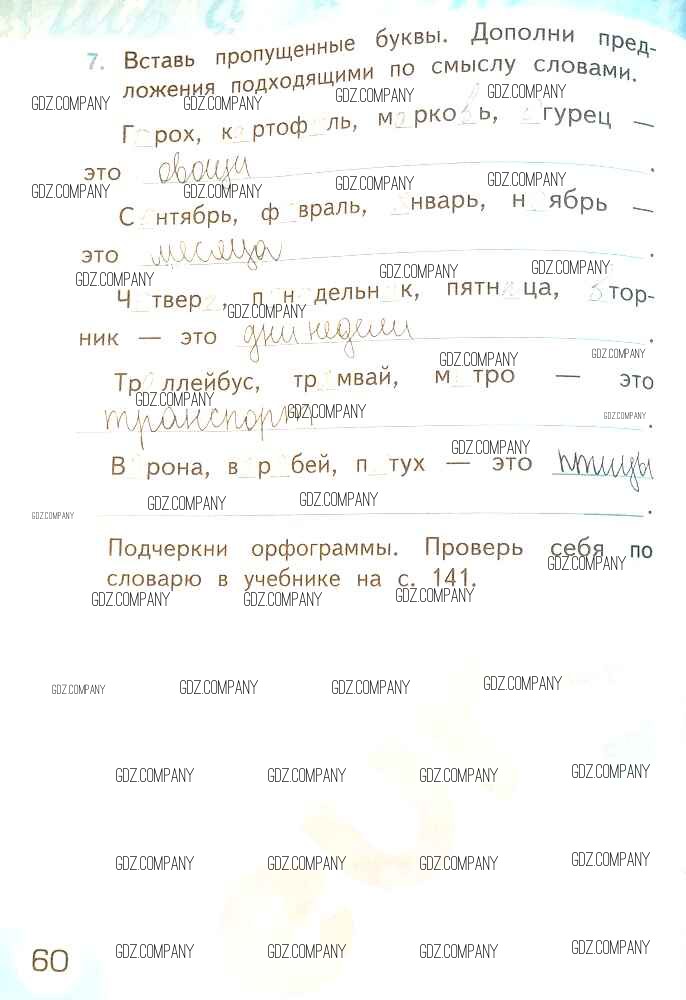 7. Вставь пропущенные буквы. Дополни пред-
ложения подходящими по смыслу словами.
GDZ.COMPANY GDZ.COMPANY GDZ.COMPANY GDZ.COMPANY
Г_рох, к_ртоф_ль, м_рко_ь, _гурец —
это овощи.
GDZ.COMPANY GDZ.COMPANY GDZ.COMPANY GDZ.COMPANY
С_нтябрь, ф_враль, _нварь, н_ябрь —
это месяца.
GDZ.COMPANY GDZ.COMPANY GDZ.COMPANY
Ч_твер_, п_н_дельн_к, пятн_ца, _тор-
GDZ.COMPANY
ник — это дни недели.
GDZ.COMPANY GDZ.COMPANY
Тр_ллейбус, тр_мвай, м_тро — это
GDZ.COMPANY GDZ.COMPANY GDZ.COMPANY
транспорт.
GDZ.COMPANY
В_рона, в_р_бей, п_тух — это птицы
GDZ.COMPANY GDZ.COMPANY GDZ.COMPANY
.
Подчеркни орфограммы. Проверь себя по
GDZ.COMPANY
словарю в учебнике на с. 141.
GDZ.COMPANY GDZ.COMPANY GDZ.COMPANY
GDZ.COMPANY GDZ.COMPANY GDZ.COMPANY GDZ.COMPANY
GDZ.COMPANY GDZ.COMPANY GDZ.COMPANY GDZ.COMPANY
GDZ.COMPANY GDZ.COMPANY GDZ.COMPANY GDZ.COMPANY
60 GDZ.COMPANY GDZ.COMPANY GDZ.COMPANY GDZ.COMPANY